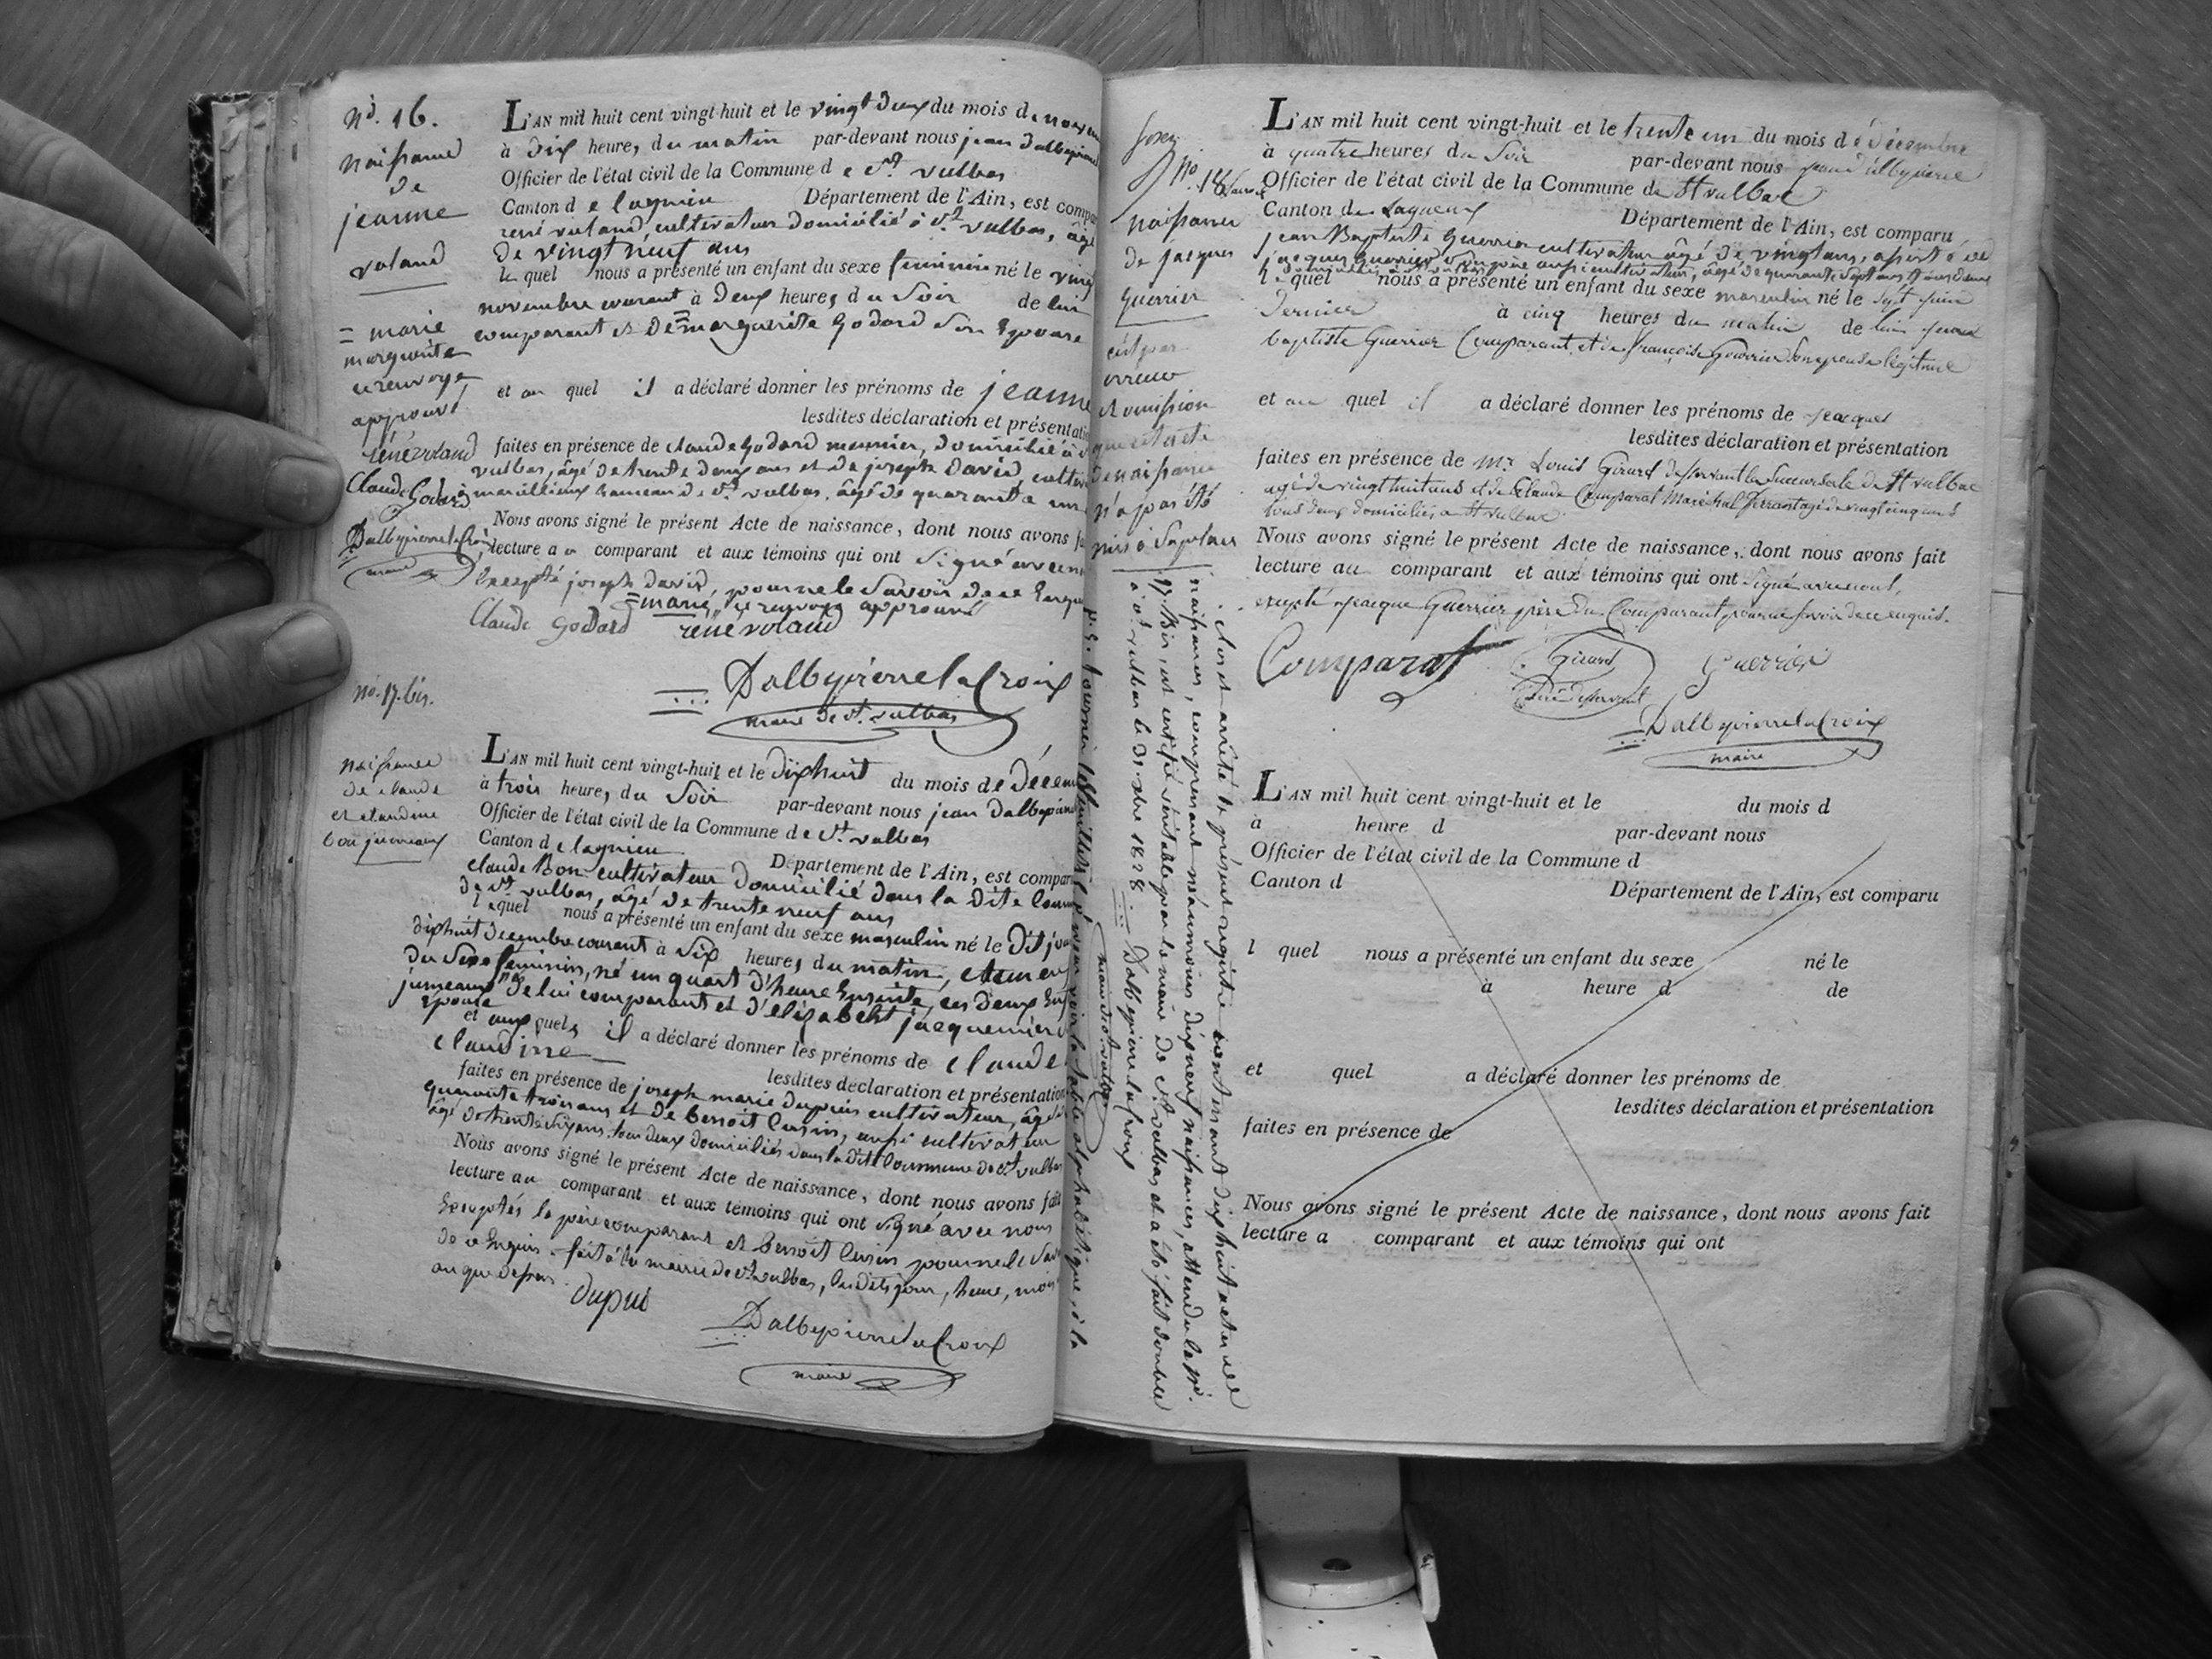 No. 16.
naissance
de
jeanne
voland
= marie
marguerite
ce renvoye
approuvé
réné voland
Claude Godard
Dalbepierre la Croix
maire
L'AN mil huit cent vingt-huit et le vingt deux du mois de novem
à dix heures du matin par-devant nous jean Dalbepierre
Officier de l'état civil de la Commune de St. vulbas
Canton de lagnieu Département de l'Ain, est compa
rené voland, cultivateur domicilié à St. vulbas, âgé
de vingt neuf ans
lequel nous a présenté un enfant du sexe feminin né le vingt
novembre courant à deux heures du Soir de lui
comparant et de = marguerite Godard Son Epouse
et au quel il a déclaré donner les prénoms de jeanne
lesdites déclaration et présentati
faites en présence de claude Godard meunier, domicilié à
vulbas, âgé de trente deux ans et de joseph David, cultiv
à marcillieux hameau de St. vulbas, âgé de quarante un
Nous avons signé le présent Acte de naissance, dont nous avons fa
lecture au comparant et aux témoins qui ont Signé avec nous
Excepté joseph David, pour ne le Savoir de ce Enquis
= marie, ce renvoye approuvé
Claude Godard réné voland
Dalbepierre la Croix
maire de St. vulbas
No. 17. bis.
naissance
de claude
et claudine
bon jumeaux
L'AN mil huit cent vingt-huit et le dixhuit du mois de Décem
à trois heures du Soir par-devant nous jean Dalbepierre
Officier de l'état civil de la Commune de St. vulbas
Canton de lagnieu Département de l'Ain, est compar
claude Bon cultivateur domicilié dans la dite Comm
de St. vulbas, âgé de trente neuf ans
lequel nous a présenté un enfant du sexe masculin né le Dit jour
dixhuit decembre courant à Six heures du matin, et un en
du Sexe feminin, né un quart d'heure Ensuite, ces deux Enf
jumeaux de lui comparant et d'elizabeht jacquemier
Epouse
et aux quels il a déclaré donner les prénoms de claude
claudine
lesdites déclaration et présentation
faites en présence de joseph marie dupuis cultivateur, âgé de
quarante trois ans et de benoit Cusin, aussi cultivateur
âgé de trente six ans, tous deux domiciliés dans la dite Commune de St. vulbas
Nous avons signé le présent Acte de naissance, dont nous avons fait
lecture au comparant et aux témoins qui ont signé avec nous
Exceptés le père comparant et benoit Cusin pour ne le Savo
de ce Enquis. fait à la mairie de St. vulbas, les dits jour, heure, mois
an que dessus.
dupui
Dalbepierre la Croix
maire
No. 18
naissance
de jacques
Guerrier
c'est par
erreur
et omission
que cet acte
de naissance
n'a pas été
mis à Sa place
L'AN mil huit cent vingt-huit et le trente un du mois de décembre
à quatre heures du Soir par-devant nous jean d'albepierre
Officier de l'état civil de la Commune de St vulbas
Canton de Lagnieu Département de l'Ain, est comparu
jean Baptiste Guerrier cultivateur âgé de vingt ans, assisté de
jacques Guerrier Son père aussi cultivateur, âgé de quarante sept ans
lequel nous a présenté un enfant du sexe masculin né le sept juin
dernier à cinq heures du matin de lui jean
baptiste Guerrier Comparant, et de françoise Guerrier Son epouse légitime
et au quel il a déclaré donner les prénoms de jacques
lesdites déclaration et présentation
faites en présence de Mr. Louis Girard desservant la Succursale de St vulbas
agé de vingt huit ans et de Claude Comparat Maréchal ferrant agé de vingt cinq ans
tous deux domiciliés a St vulbas
Nous avons signé le présent Acte de naissance, dont nous avons fait
lecture au comparant et aux témoins qui ont Signé avec nous,
excepté jacque Guerrier père du Comparant pour ne Savoir de ce enquis.
Comparat Girard Guerrier
Curé desservant
Dalbepierre la Croix
maire
L'AN mil huit cent vingt-huit et le du mois d
à heure d par-devant nous
Officier de l'état civil de la Commune d
Canton d Département de l'Ain, est comparu
l quel nous a présenté un enfant du sexe né le
à heure d de
et quel a déclaré donner les prénoms de
lesdites déclaration et présentation
faites en présence de
Nous avons signé le présent Acte de naissance, dont nous avons fait
lecture a comparant et aux témoins qui ont
clos et arrêté le présent registre contenant dixhuit actes de
naissances, comprenant néanmoins dixneuf naissances, attendu le No.
17. Bis, est certifié véritable par le maire de St. vulbas et a été fait double
à St. vulbas le 31 xbre 1828. Dalbepierre la Croix
maire de St. vulbas
N. B. tourner le feuillet pour voir la table alphabétique, à la